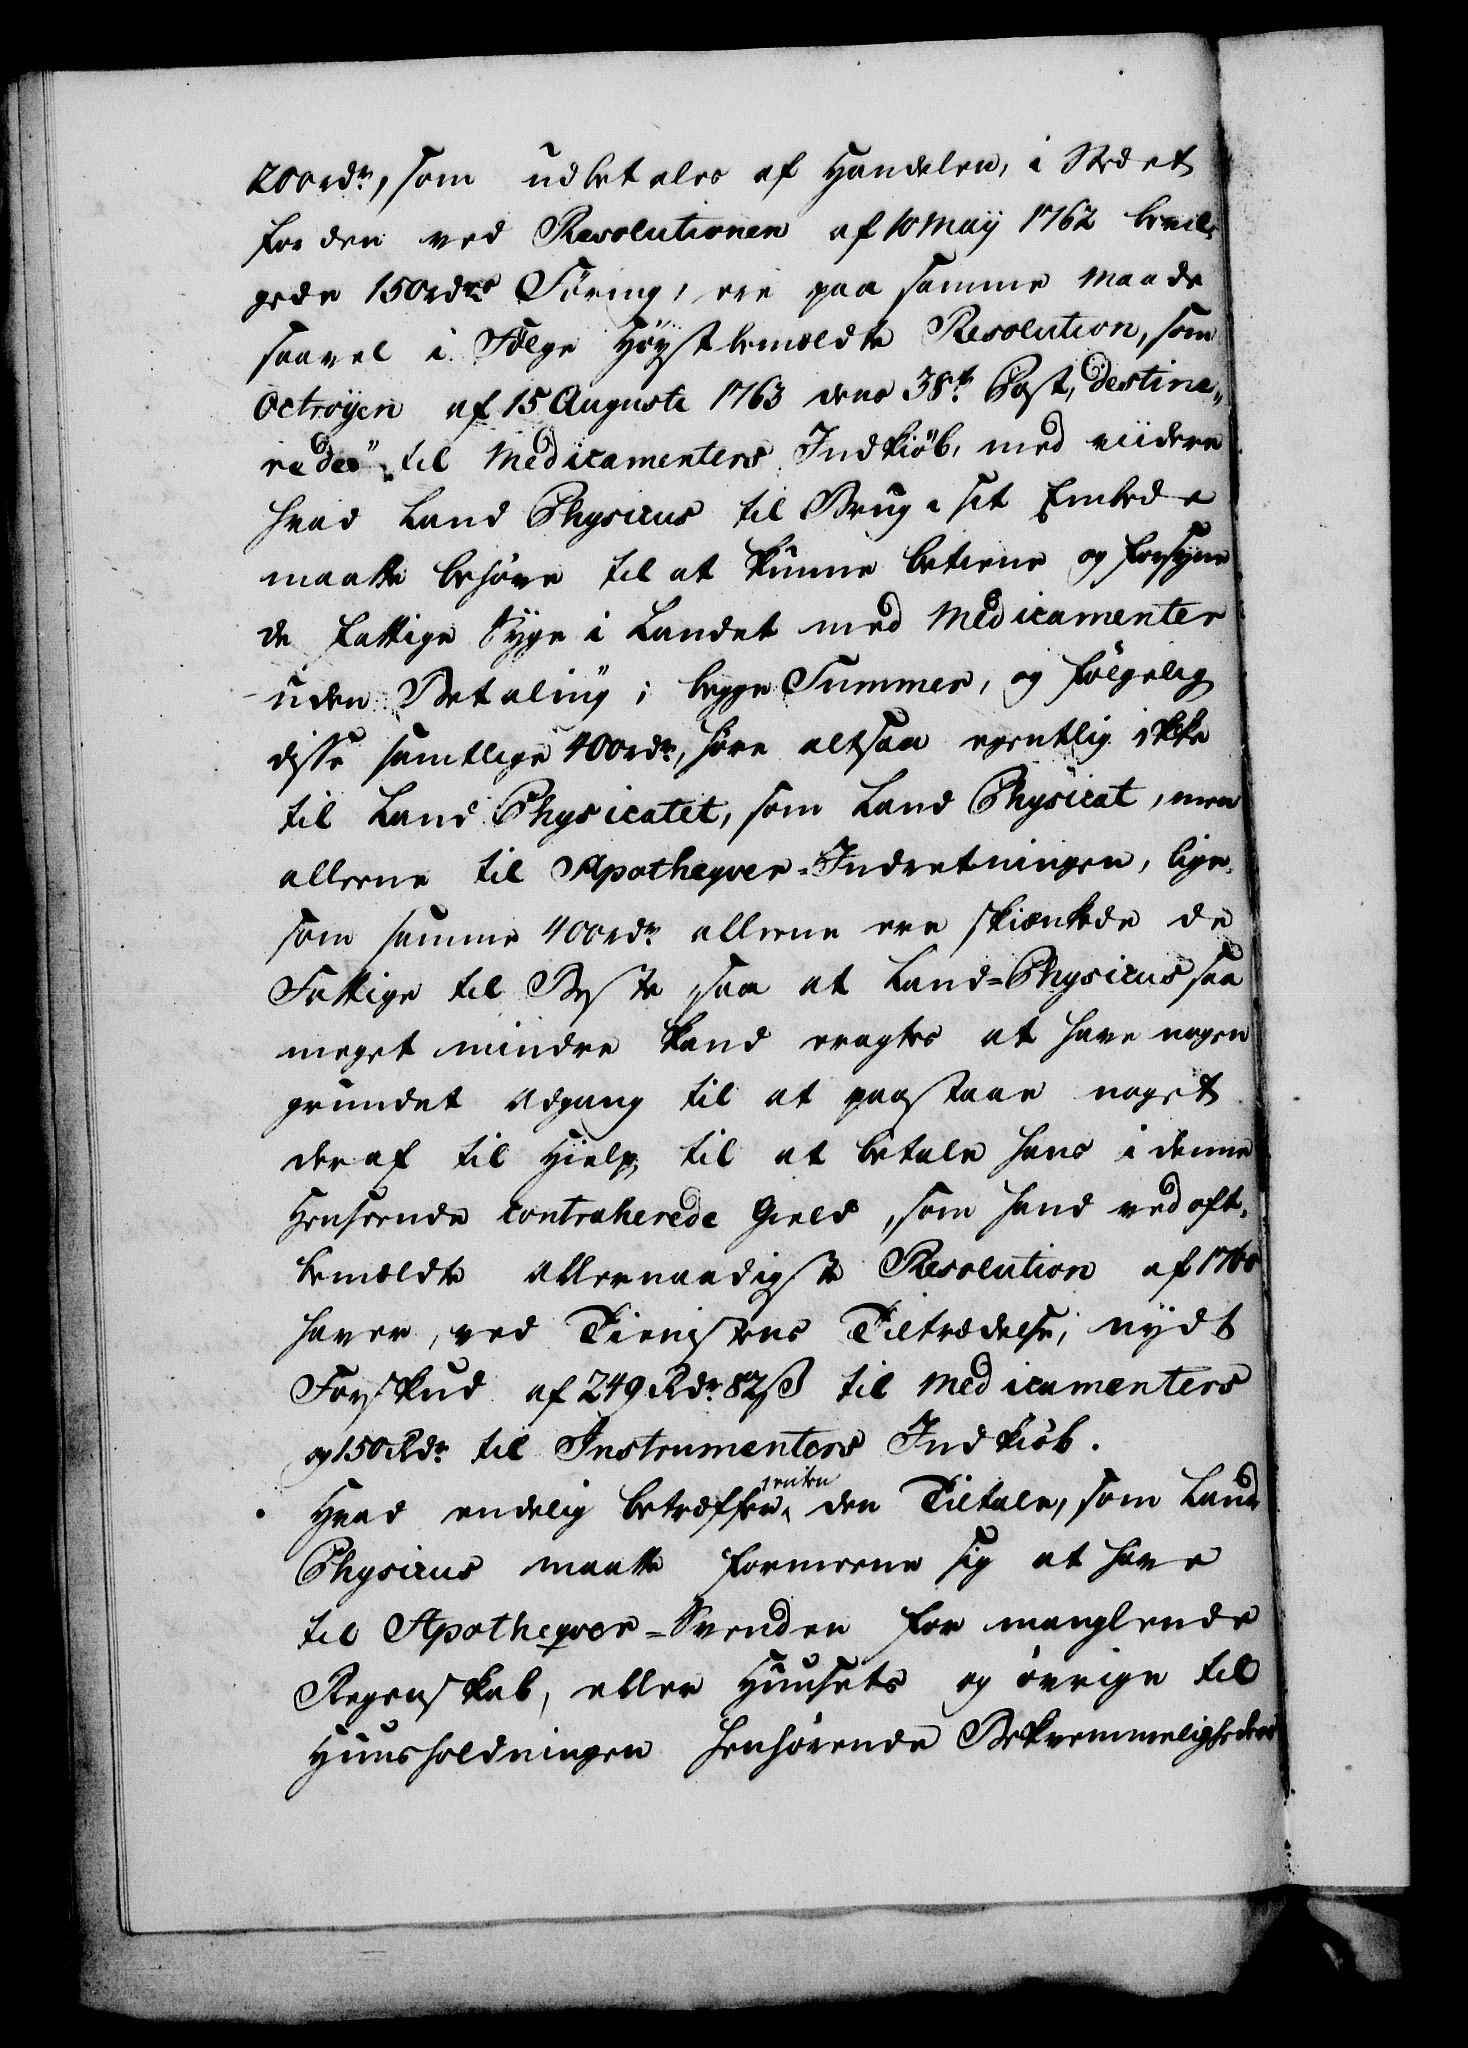 200rdr, som udbetales af Handelen, i Stedet
for den ved Resolutionen af 10 Maÿ 1762 bevil-
gede 150rdrs Föring, ere paa samme Maade
saavel i Fölge Höÿstbemeldte Resolution, som
Octroÿen af 15 Augusti 1763 dens 38te Post, destine„
redes" til Medicamenters Indkiöb, med viidere
hvad Land Physicus til Brug i sit Embede
maatte behöve til at kunne betiene og forsyne
de fattige Syge i Landet med Medicamenter
uden Betaling; begge Summer, og fölgelig
disse samtlige 400rdr, höre altsaa egentlig ikke
til Land Physicatet, som Land Physicat, men
alleene til Apotheqver-Indretningen, lige-
som samme 400rdr alleene ere skienkede de
Fattige til Beste, saa at Land=Physicus saa
meget mindre kand eragtes at have nogen
grundet Adgang til at paastaae noget
deraf til Hielp til at betale hans i denne
Henseende contraherede Gield, som hand ved oft-
bemeldte Allernaadigste Resolution af 1760
haver, ved Tienistens Tiltrædelse, nydt
Forskud af 249 Rdr 82ß til Medicamenters
og 150 Rdr til Instrumenters Indkiöb.
Hvad endelig betræffer enten den Tiltale, som Land
Physicus maatte formeene sig at have
til Apotheqver=Svenden for manglende
Regenskab, eller Huusets og övrige til
Huusholdningen henhörende Beqvemmeligheders